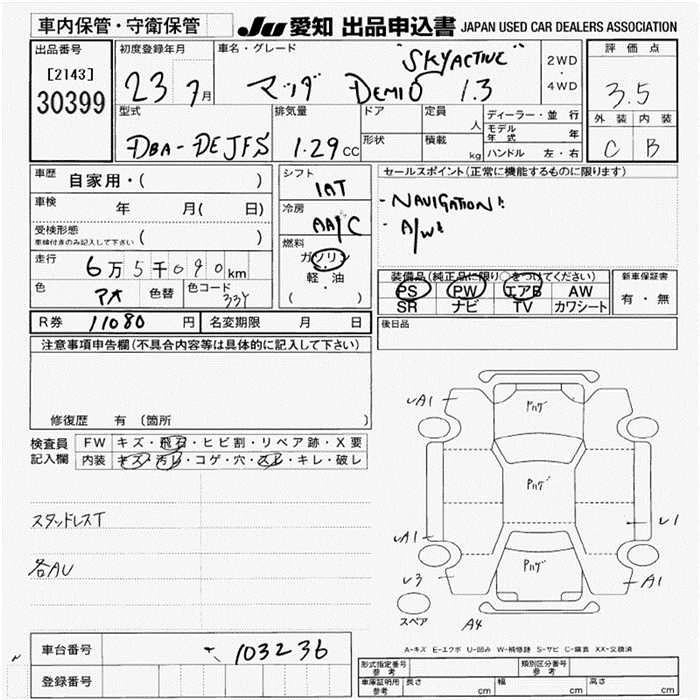 車内保管・守衛保管 JU 愛知 出品申込書 JAPAN USED CAR DEALERS ASSOCIATION
出品番号 初度登録年月 車名・グレード "SKYACTIVE" 2WD ・ 4WD 評価点
[2143]
30399 23 7月 マツダ DEMIO 1.3 3.5
型式 排気量 ドア 定員 人 ディーラー・並行 外装 内装
DBA-DEJFS 1.29cc 形状 積載 kg モデル年式 年 C B
ハンドル 左・右
車歴 自家用・( ) シフト 1AT セールスポイント(正常に機能するものに限ります)
車検 年 月( 日) 冷房 AA/C ・NAVIGATION!
受検形態 ( ) ・A/W!
車検付きのみ記入して下さい
燃料 ガソリン
走行 6万5千090km 軽・油
( )
装備品(純正品に限り○をつけてください) 新車保証書
PS PW エアB AW 有・無
SR ナビ TV カワシート
色 アオ 色替 色コード 33Y
後日品
R券 11080円 名変期限 月 日
注意事項申告欄(不具合内容等は具体的に記入して下さい)
修復歴 有 (箇所 )
検査員 FW キズ・飛石・ヒビ割・リペア跡・X要
記入欄 内装 キズ・汚レ・コゲ・穴・スレ・キレ・破レ
スタッドレスT
各AU
Pハゲ
Pハゲ
Pハゲ
A1
A1
U1
U3
A1
A4
スペア
A-キズ E-エクボ U-凹み W-補修跡 S-サビ C-腐食 XX-交換済
車台番号 103236
登録番号
形式指定番号 参考 類別区分番号 参考
車庫証明用 参考 長さ cm 幅 cm 高さ cm